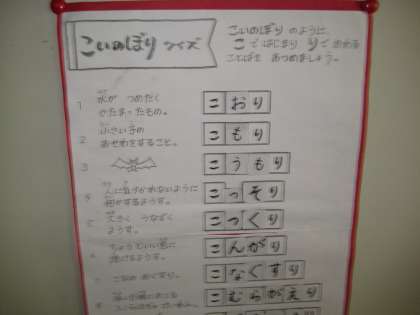 こいのぼり クイズ
こいのぼり のように
こ で はじまり り で おわる
ことばを あつめましょう。
1 水が つめたく
かたまったもの。
こおり
2 小さい子の
おせわをすること。
こもり
3
こうもり
4 人に気づかれないように
何かするようす。
こっそり
5 大きく うなずく
ようす。
こっくり
6 ちょうどいい色に
焼けるようす。
こんがり
7 こなの おくすり。
こなぐすり
8
こむらがえり